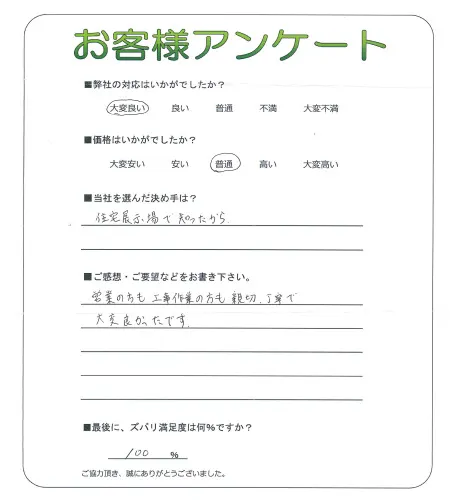 お客様アンケート
■弊社の対応はいかがでしたか？
大変良い 良い 普通 不満 大変不満
■価格はいかがでしたか？
大変安い 安い 普通 高い 大変高い
■当社を選んだ決め手は？
住宅展示場で知ったから
■ご感想・ご要望などをお書き下さい。
営業の方も工事作業の方も親切、丁寧で
大変良かったです。
■最後に、ズバリ満足度は何%ですか？
100 %
ご協力頂き、誠にありがとうございました。